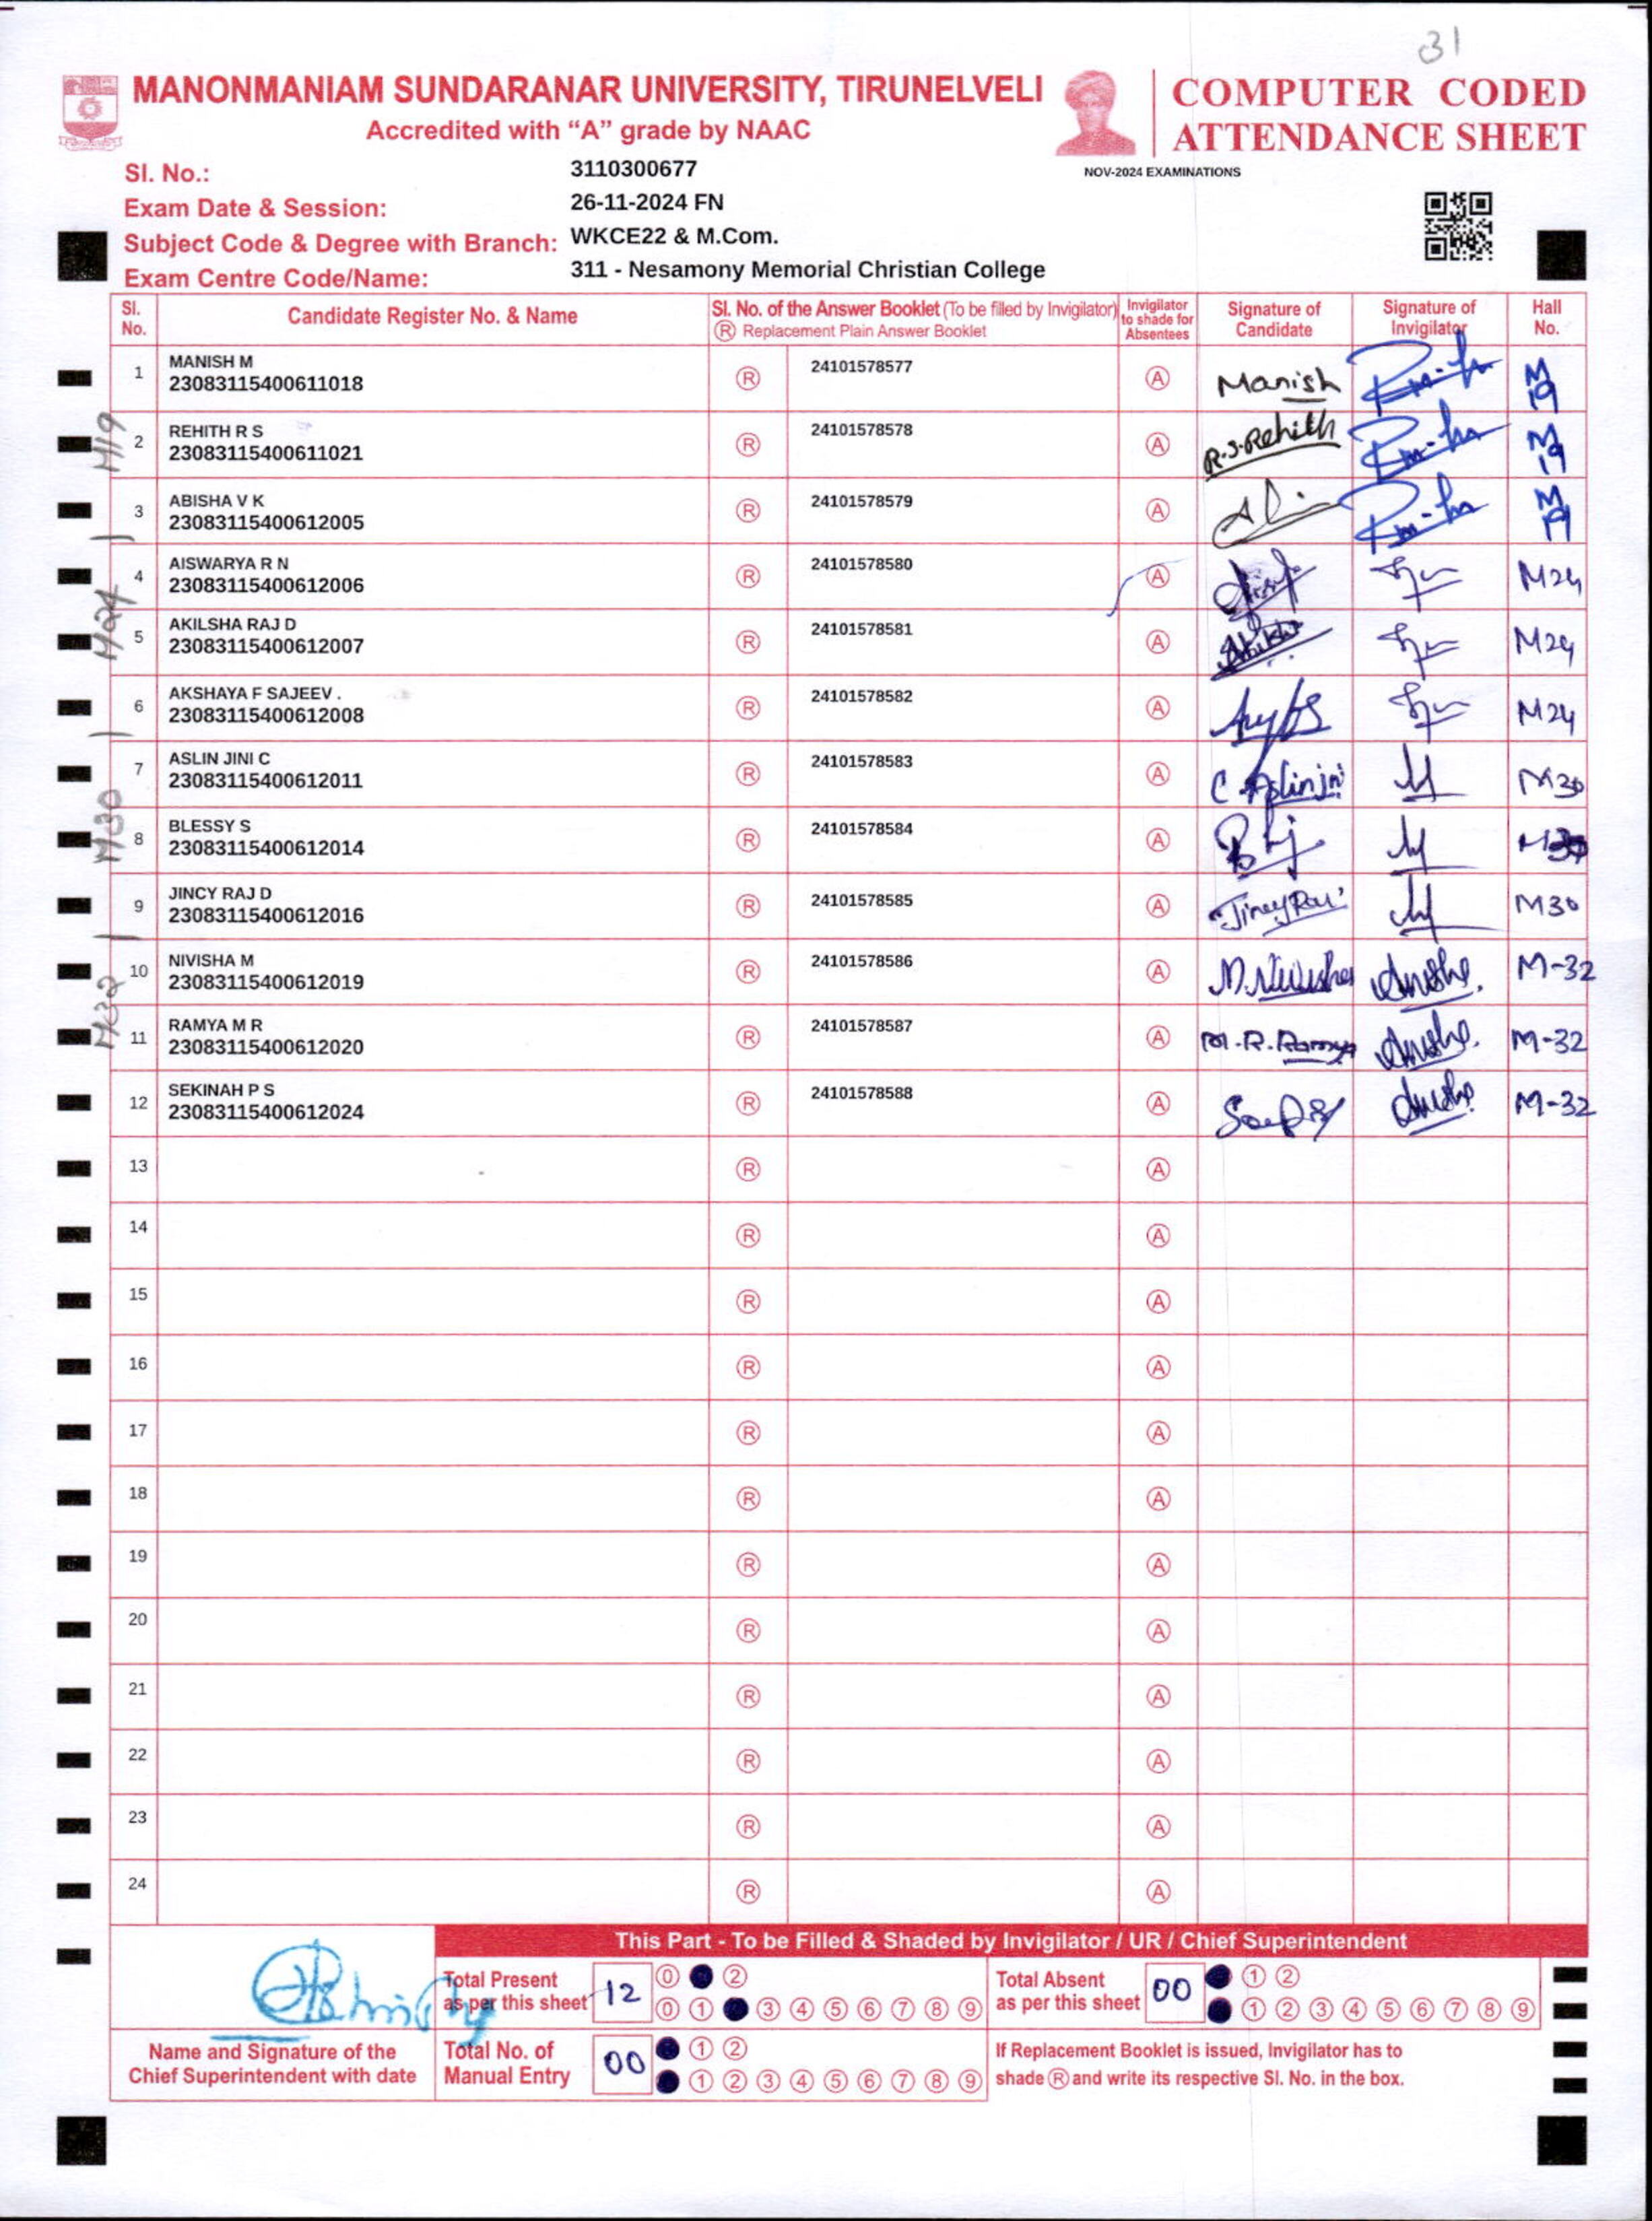 31
MANONMANIAM SUNDARANAR UNIVERSITY, TIRUNELVELI
Accredited with “A” grade by NAAC
COMPUTER CODED
ATTENDANCE SHEET
NOV-2024 EXAMINATIONS
Sl. No.: 3110300677
Exam Date & Session: 26-11-2024 FN
Subject Code & Degree with Branch: WKCE22 & M.Com.
Exam Centre Code/Name: 311 - Nesamony Memorial Christian College
Sl. No. Candidate Register No. & Name Sl. No. of the Answer Booklet (To be filled by Invigilator) Ⓡ Replacement Plain Answer Booklet Invigilator to shade for Absentees Signature of Candidate Signature of Invigilator Hall No.
M19
M24
M30
M32
1 MANISH M 23083115400611018 Ⓡ 24101578577 Ⓐ Manish M 19
2 REHITH R S 23083115400611021 Ⓡ 24101578578 Ⓐ R.S.Rehith M 19
3 ABISHA V K 23083115400612005 Ⓡ 24101578579 Ⓐ M 19
4 AISWARYA R N 23083115400612006 Ⓡ 24101578580 Ⓐ M24
5 AKILSHA RAJ D 23083115400612007 Ⓡ 24101578581 Ⓐ M24
6 AKSHAYA F SAJEEV . 23083115400612008 Ⓡ 24101578582 Ⓐ M24
7 ASLIN JINI C 23083115400612011 Ⓡ 24101578583 Ⓐ C. Aslin jini M30
8 BLESSY S 23083115400612014 Ⓡ 24101578584 Ⓐ M30
9 JINCY RAJ D 23083115400612016 Ⓡ 24101578585 Ⓐ Jincy Raj M30
10 NIVISHA M 23083115400612019 Ⓡ 24101578586 Ⓐ M.Nivisha M-32
11 RAMYA M R 23083115400612020 Ⓡ 24101578587 Ⓐ M.R.Ramya M-32
12 SEKINAH P S 23083115400612024 Ⓡ 24101578588 Ⓐ M-32
13 Ⓡ Ⓐ
14 Ⓡ Ⓐ
15 Ⓡ Ⓐ
16 Ⓡ Ⓐ
17 Ⓡ Ⓐ
18 Ⓡ Ⓐ
19 Ⓡ Ⓐ
20 Ⓡ Ⓐ
21 Ⓡ Ⓐ
22 Ⓡ Ⓐ
23 Ⓡ Ⓐ
24 Ⓡ Ⓐ
This Part - To be Filled & Shaded by Invigilator / UR / Chief Superintendent
Total Present as per this sheet 12 ⓪ ②
⓪ ① ③ ④ ⑤ ⑥ ⑦ ⑧ ⑨
Total Absent as per this sheet 00 ① ②
① ② ③ ④ ⑤ ⑥ ⑦ ⑧ ⑨
Name and Signature of the Chief Superintendent with date
Total No. of Manual Entry 00 ① ②
① ② ③ ④ ⑤ ⑥ ⑦ ⑧ ⑨
If Replacement Booklet is issued, Invigilator has to
shade Ⓡ and write its respective Sl. No. in the box.